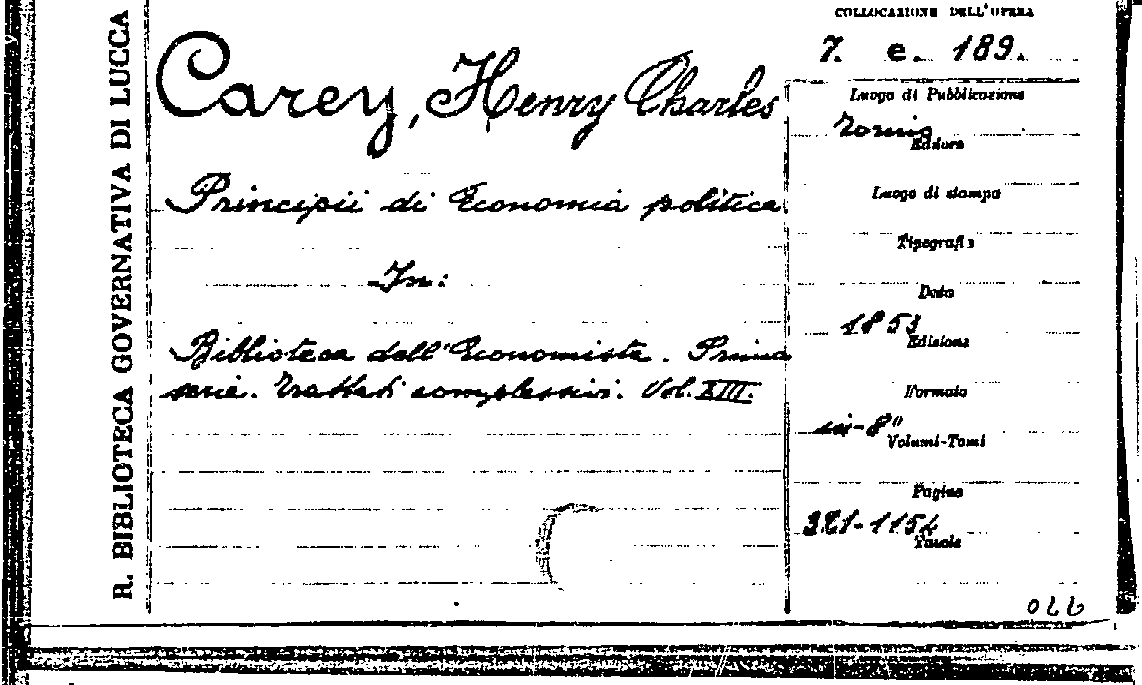 R. BIBLIOTECA GOVERNATIVA DI LUCCA
COLLOCAZIONE DELL'OPERA
7. e. 189.
Carey, Henry Charles
Luogo di Pubblicazione
Torino
Editore
Principii di Economia politica.
Luogo di stampa
Tipografia
In:
Data
1853
Biblioteca dell'Economista. Prima
Edizione
serie. Trattati complessivi. Vol. XIII.
Formato
in-8°
Volumi-Tomi
Pagine
321-1154
Tavole